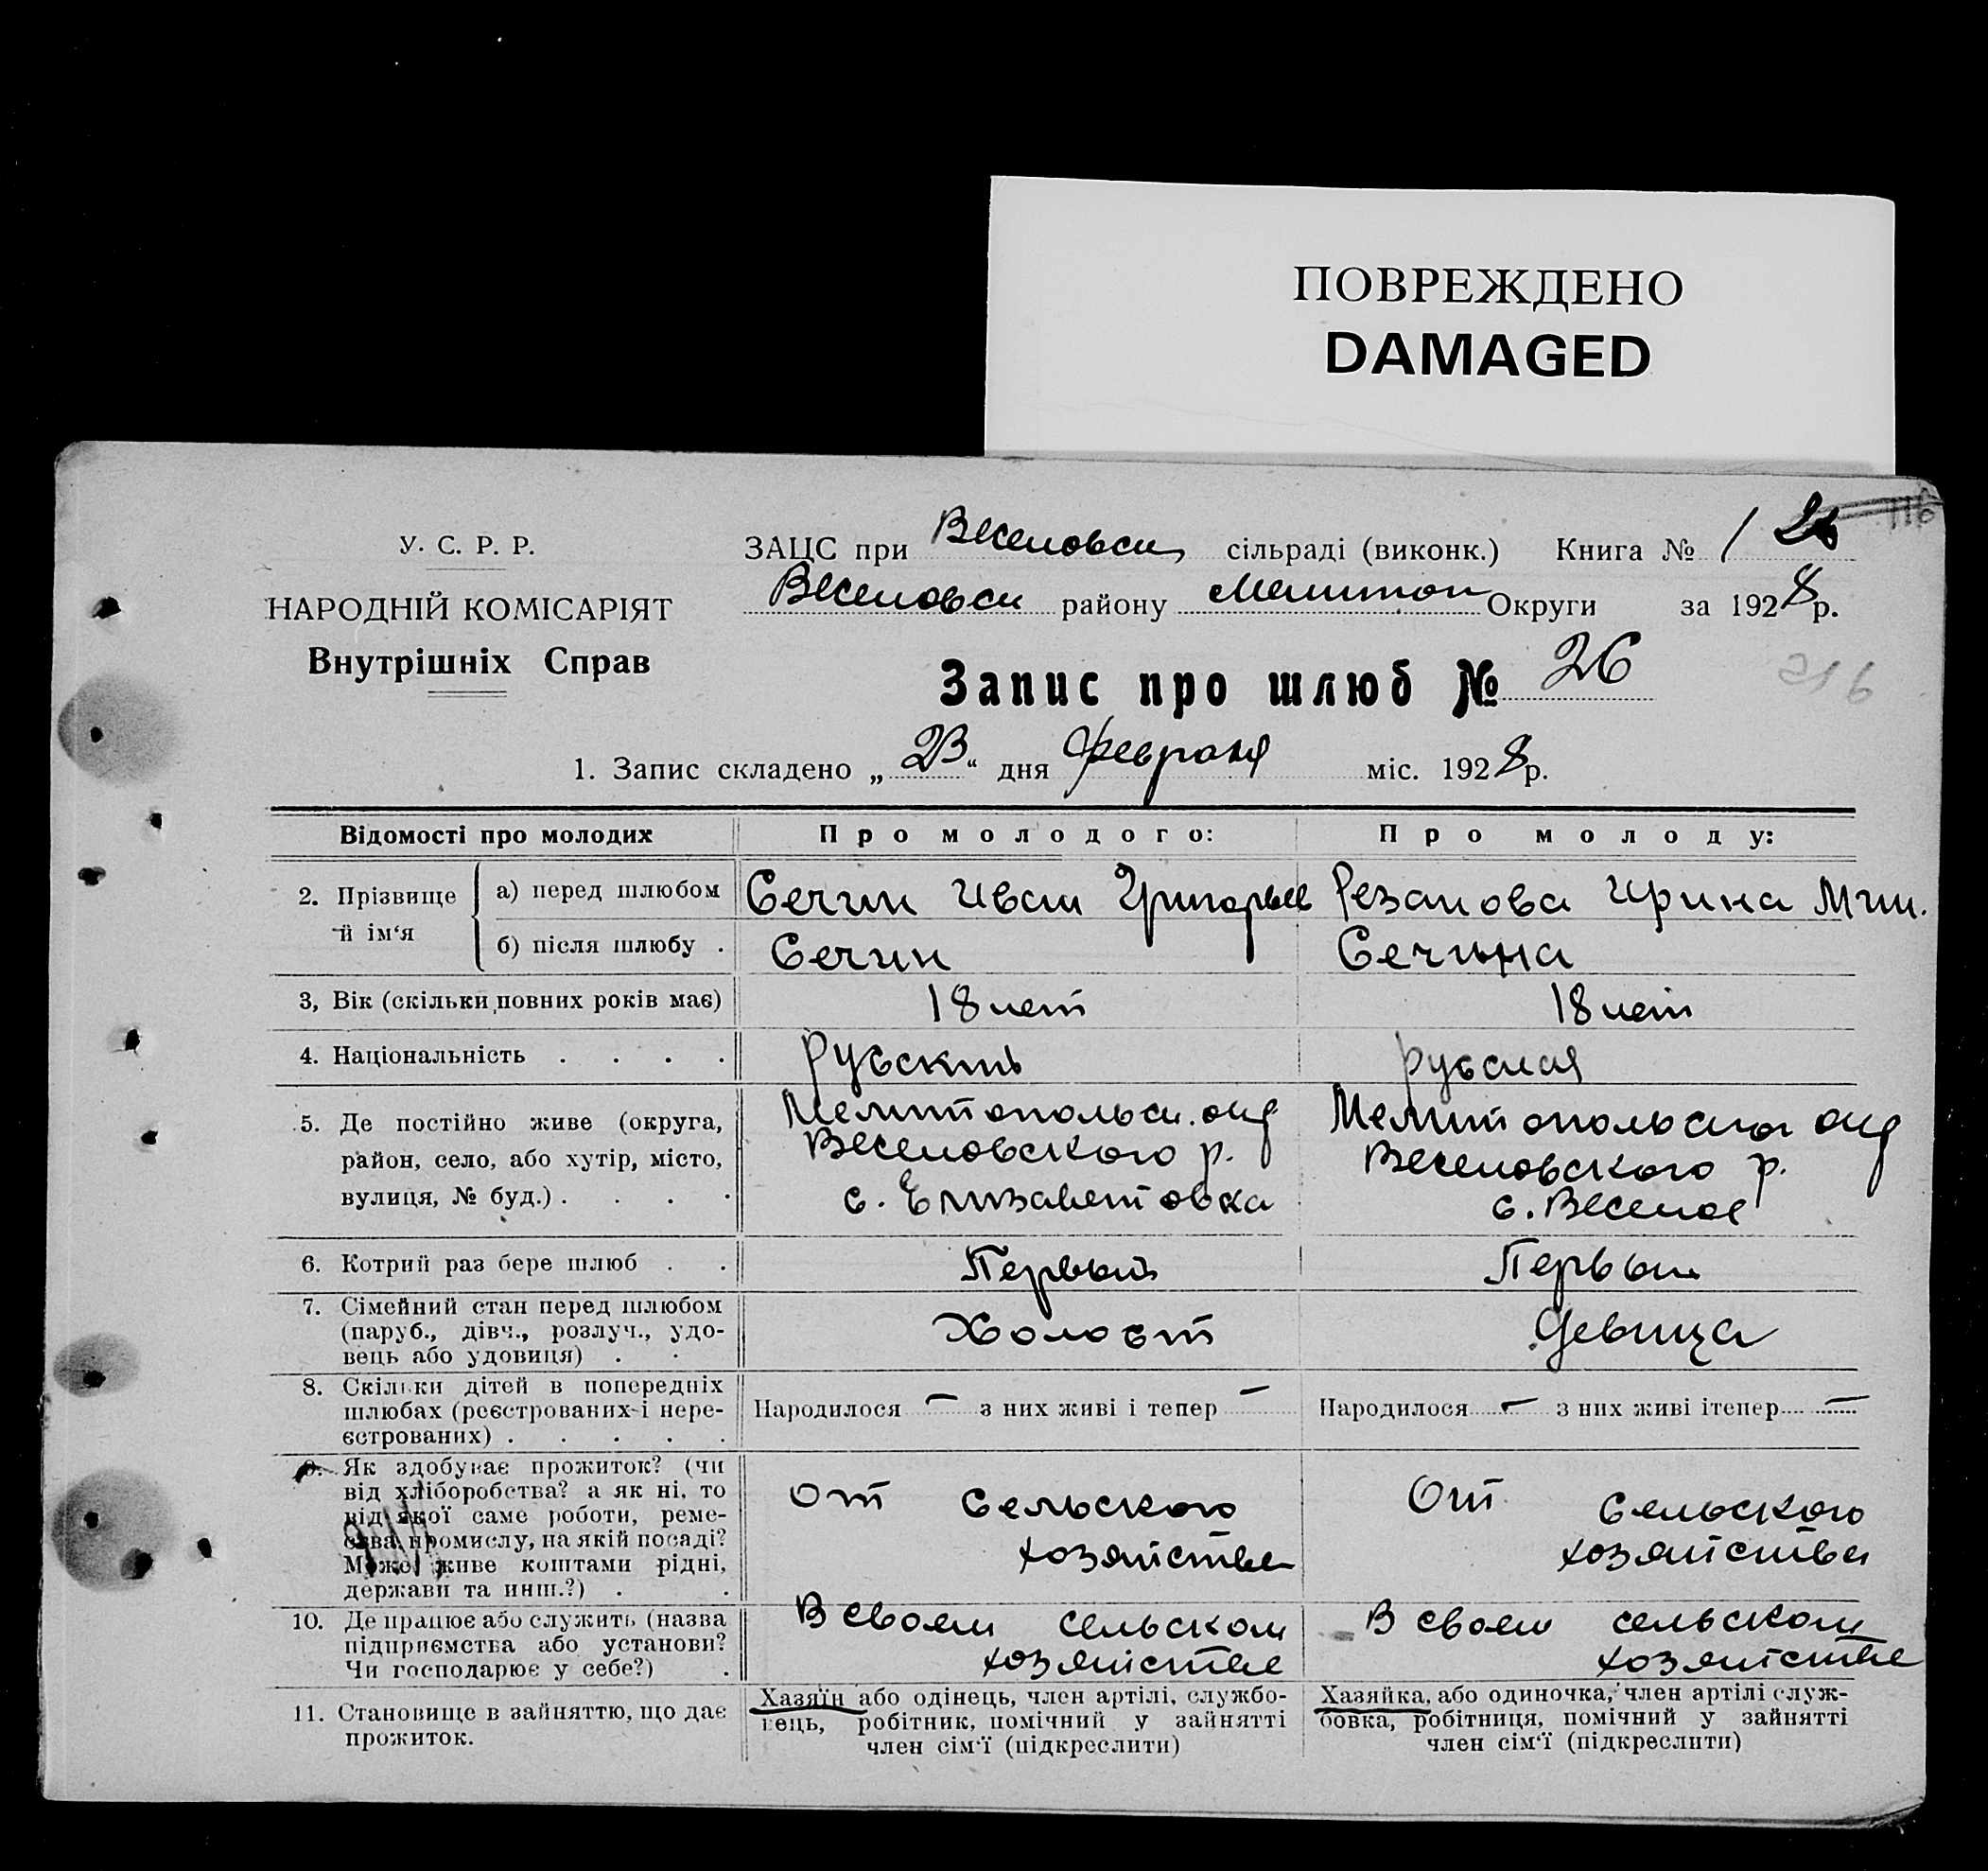 ПОВРЕЖДЕНО
DAMAGED
116
У. С. Р. Р.
НАРОДНІЙ КОМІСАРІЯТ
Внутрішніх Справ
ЗАЦС при Веселовск, сільраді (виконк.) Книга № 1 26
Веселовск району Мелитоп Округи за 1928 р.
Запис про шлюб № 26
216
1. Запис складено „23“ дня февраля міс. 1928 р.
Відомості про молодих
Про молодого:
Про молоду:
2. Прізвище й ім‘я
а) перед шлюбом
Сечин Иван Григорьев
Резанова Ирина Мин.
б) після шлюбу .
Сечин
Сечина
3, Вік (скільки повних років має)
18 лет
18 лет
4. Національність . . . .
русский
русская
5. Де постійно живе (округа,
район, село, або хутір, місто,
вулиця, № буд.) . . . .
Мелитопольск. окр
Веселовского р.
с. Елизаветовка
Мелитопольского окр
Веселовского р.
с. Веселое
6. Котрий раз бере шлюб . .
Первый
Первый
7. Сімейний стан перед шлюбом
(паруб., дівч., розлуч., удо-
вець або удовиця) . .
Холост
Девица
8. Скільки дітей в попередніх
шлюбах (реєстрованих і нере-
єстрованих) . . . . .
Народилося — з них живі і тепер —
Народилося — з них живі ітепер —
9. Як здобуває прожиток? (чи
від хліборобства? а як ні, то
від якої саме роботи, реме-
сва, промислу, на якій посаді?
Може живе коштами рідні,
держави та инш.?) . .
От сельского
хозяйства
От сельского
хозяйства
10. Де працює або служить (назва
підприємства або установи?
Чи господарює у себе?) .
В своем сельском
хозяйстве
В своем сельском
хозяйстве
11. Становище в зайняттю, що дає
прожиток.
Хазяїн або одінець, член артілі, службо-
вець, робітник, помічний у зайнятті
член сім‘ї (підкреслити)
Хазяйка, або одиночка, член артілі служ-
бовка, робітниця, помічний у зайнятті
член сім‘ї (підкреслити)